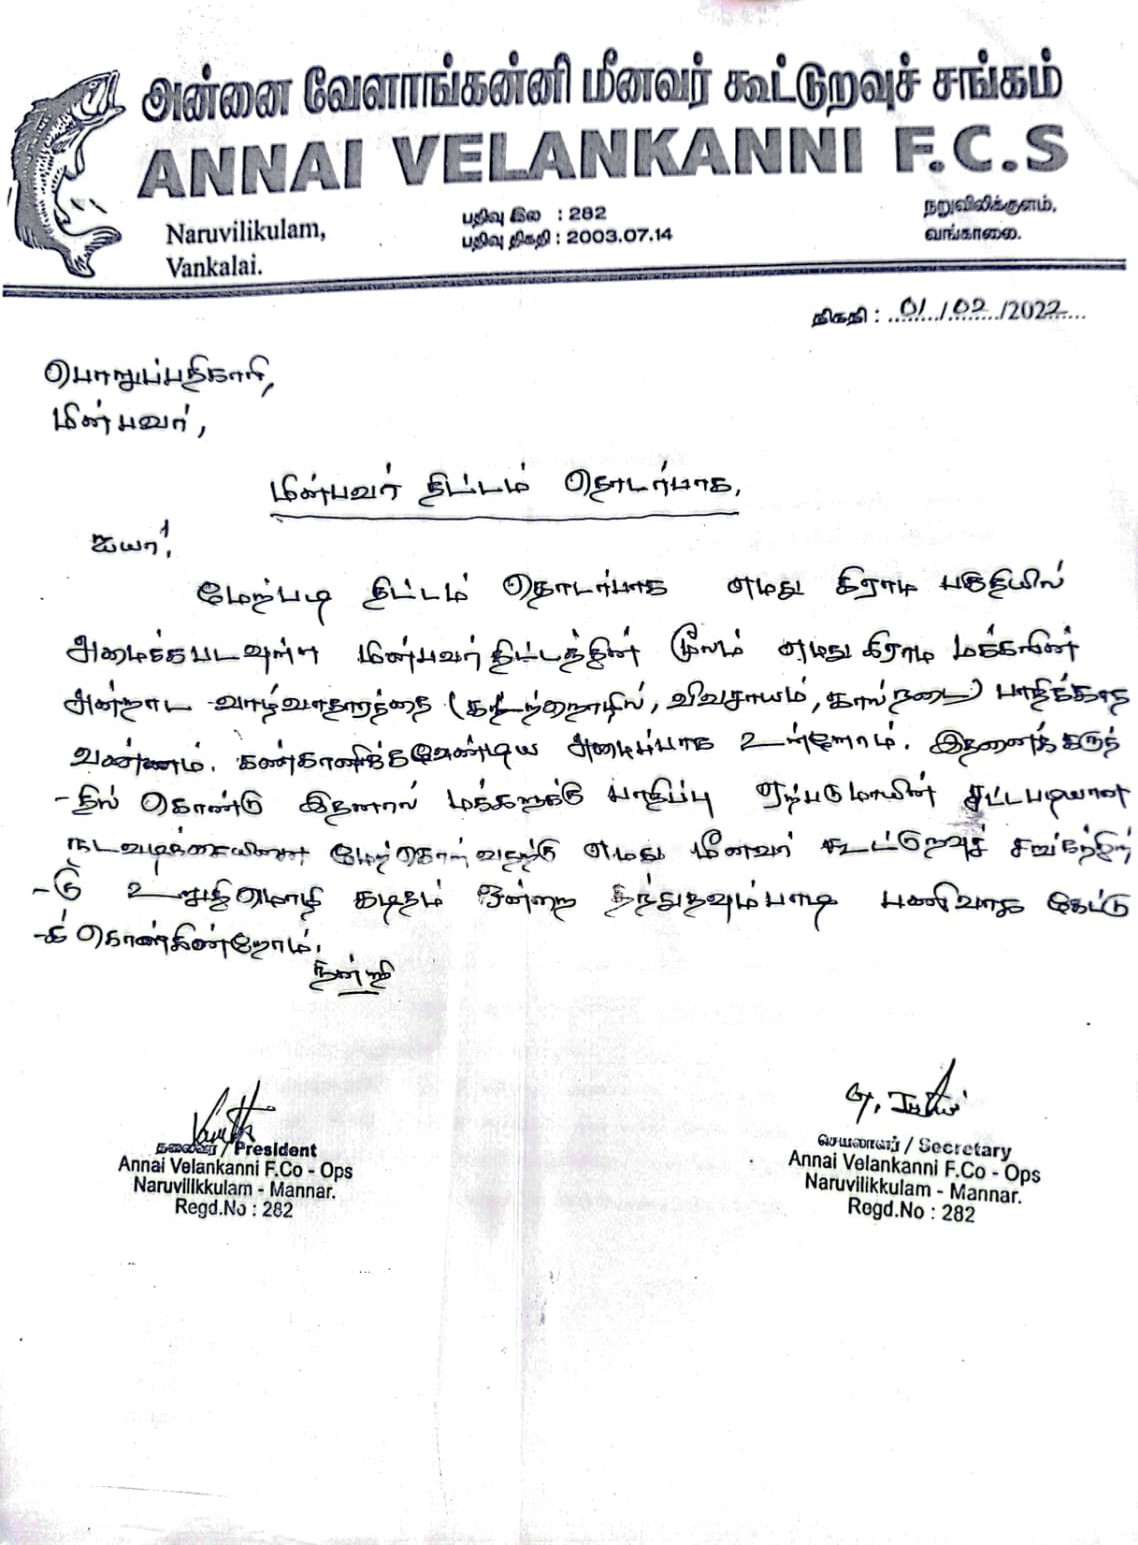 அன்னை வேளாங்கன்னி மீனவர் கூட்டுறவுச் சங்கம்
ANNAI VELANKANNI F.C.S
Naruvilikulam,
Vankalai.
பதிவு இல : 282
பதிவு திகதி : 2003.07.14
நறுவிலிக்குளம்,
வங்காலை.
திகதி : 01/02/2022
பொறுப்பதிகாரி,
மின்பவர்,
மின்பவர் திட்டம் தொடர்பாக,
ஐயா!,
மேற்படி திட்டம் தொடர்பாக எமது கிராம பகுதியில்
அமைக்கபடவுள்ள மின்பவர் திட்டத்தின் மூலம் எமது கிராம மக்களின்
அன்றாட வாழ்வாதாரத்தை (கடற்றொழில், விவசாயம், கால்நடை) பாதிக்காத
வண்ணம். கண்காணிக்கவேண்டிய அமைப்பாக உள்ளோம். இதனைக் கருத்
-தில் கொண்டு இதனால் மக்களுக்கு பாதிப்பு ஏற்படுமாயின் சட்டபடியான
நடவடிக்கையினை மேற்கொள்வதற்கு எமது மீனவர் கூட்டுறவுச் சங்கத்திற்
-கு உறுதிமொழி கடிதம் ஒன்றை தந்துதவும்படி பணிவாக கேட்டு
-க் கொள்கின்றோம்.
நன்றி
தலைவர் / President
Annai Velankanni F.Co - Ops
Naruvilikkulam - Mannar.
Regd.No : 282
செயலாளர் / Secretary
Annai Velankanni F.Co - Ops
Naruvilikkulam - Mannar.
Regd.No : 282